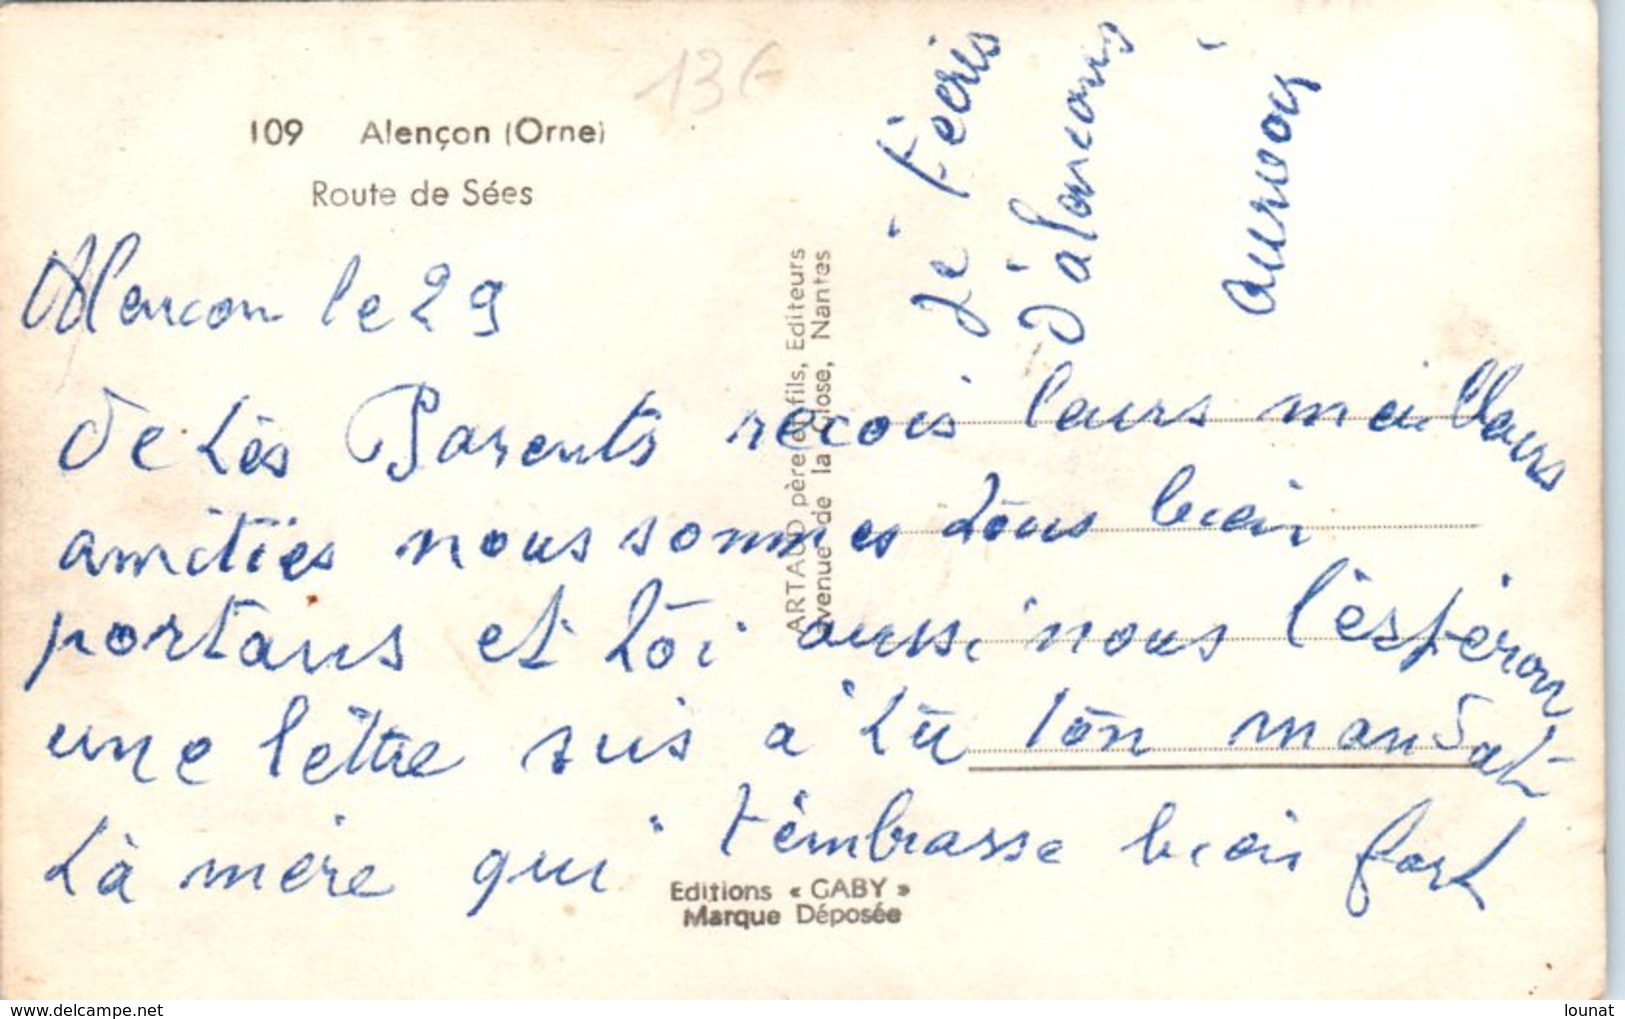 13€
109 Alençon (Orne)
Route de Sées
Alencon le 29
de tès Parents recois leurs meilleurs
amitiés nous sommes tous bien
portans et tòi aussi nous l'espéron
une lettre suis a tu tòn mandat
tà mère qui t'émbrasse bien fort
je t'ecris
d'alencons
aurvoir
ARTAUD père et fils, Editeurs
Avenue de la Close, Nantes
Editions « GABY »
Marque Déposée
www.delcampe.net
lounat